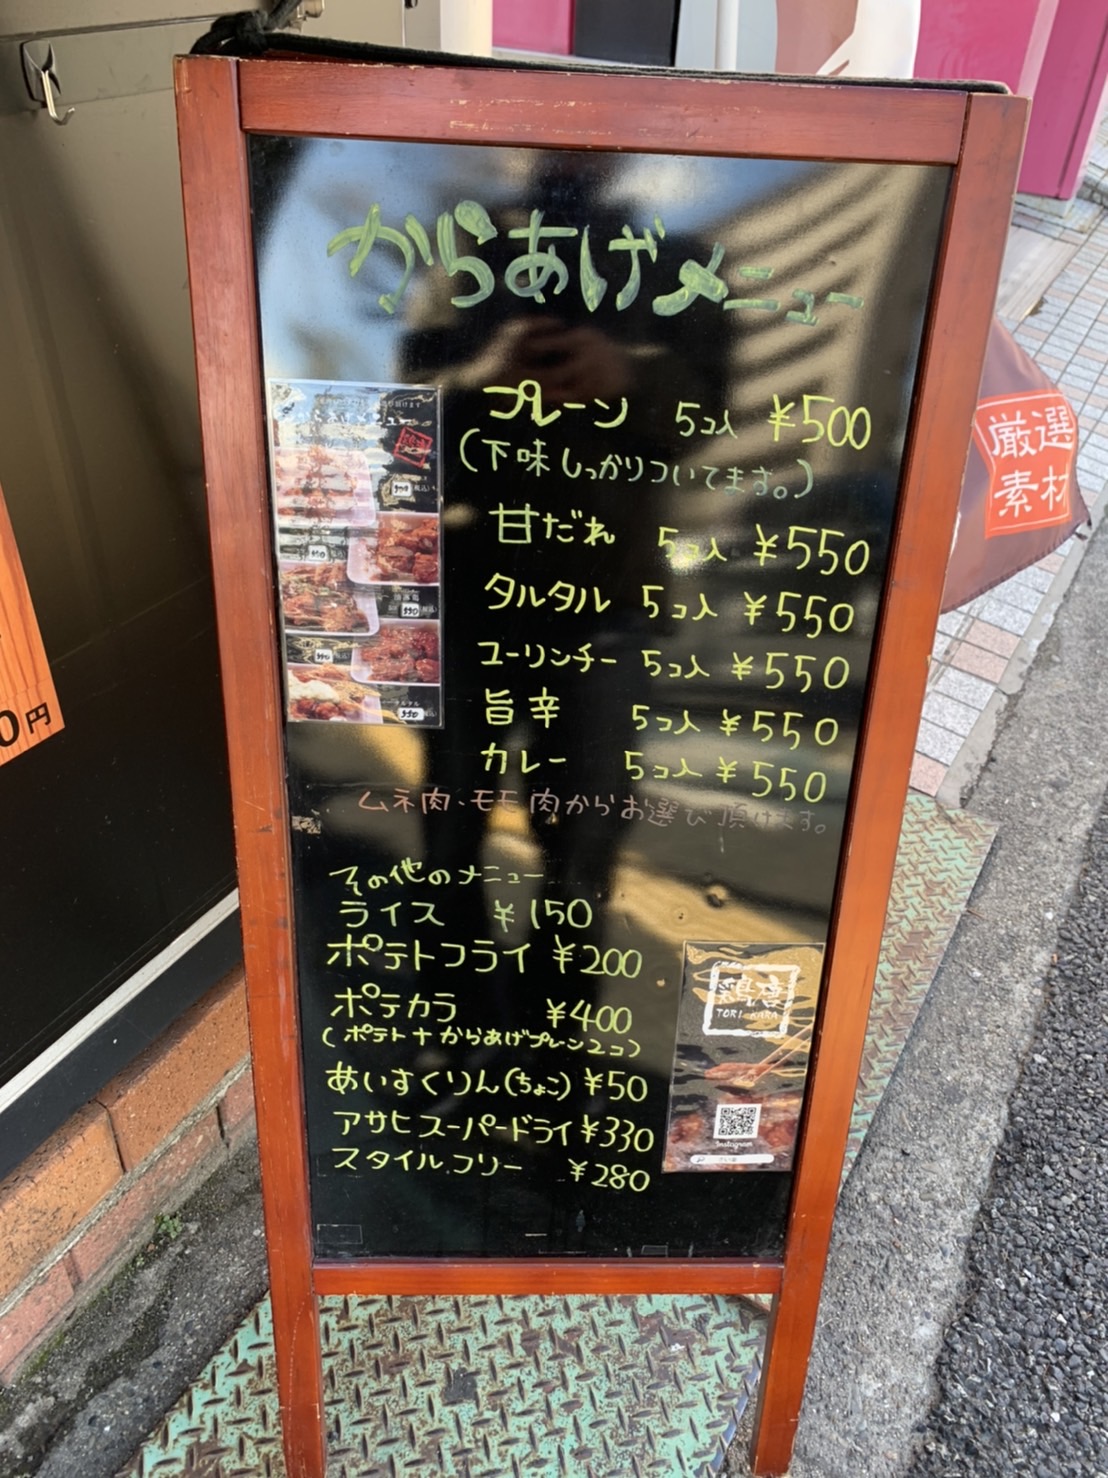 からあげメニュー
プレーン 5コ入 ¥500
(下味しっかりついてます。)
甘だれ 5コ入 ¥550
タルタル 5コ入 ¥550
ユーリンチー 5コ入 ¥550
旨辛 5コ入 ¥550
カレー 5コ入 ¥550
ムネ肉、モモ肉からお選び頂けます。
その他のメニュー
ライス ¥150
ポテトフライ ¥200
ポテカラ ¥400
(ポテト+からあげプレーン2コ)
あいすくりん(ちょこ) ¥50
アサヒスーパードライ ¥330
スタイルフリー ¥280
TORI KARA
Instagram
厳選
素材
0円
550
550
550